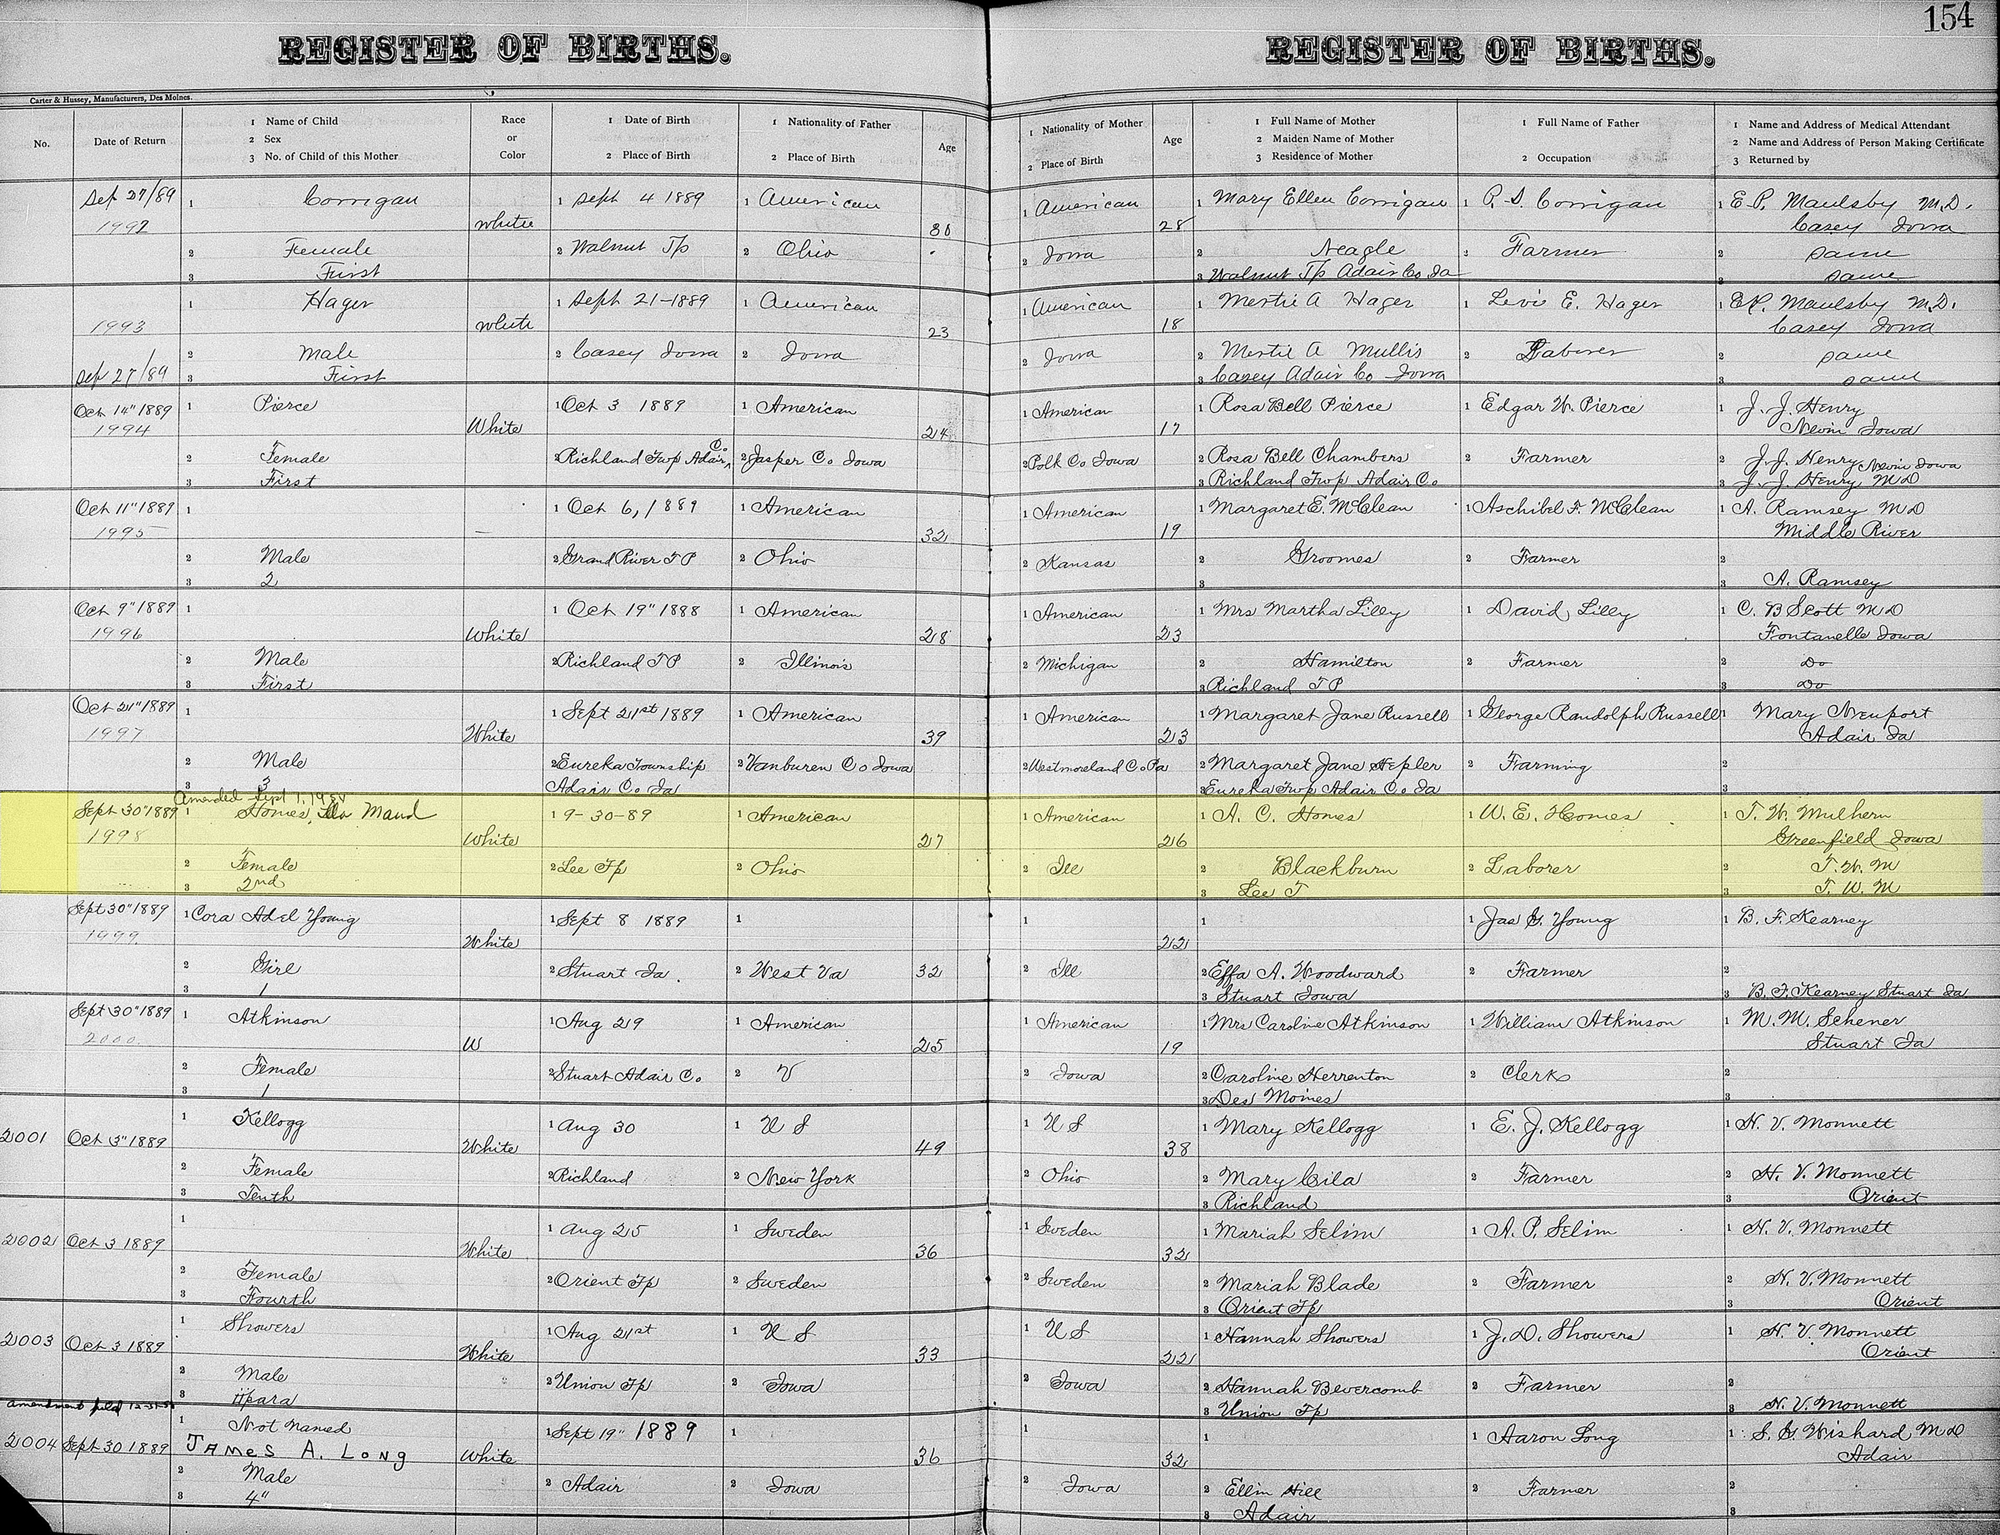 154
REGISTER OF BIRTHS. REGISTER OF BIRTHS.
Carter & Hussey, Manufacturers, Des Moines.
No. Date of Return 1 Name of Child 2 Sex 3 No. of Child of this Mother Race or Color 1 Date of Birth 2 Place of Birth 1 Nationality of Father 2 Place of Birth Age 1 Nationality of Mother 2 Place of Birth Age 1 Full Name of Mother 2 Maiden Name of Mother 3 Residence of Mother 1 Full Name of Father 2 Occupation 1 Name and Address of Medical Attendant 2 Name and Address of Person Making Certificate 3 Returned by
Sep 27/89 1 Corrigan 1 Sept 4 1889 1 American 1 American 1 Mary Ellen Corrigan 1 P. S. Corrigan 1 E P. Maulsby M.D.
1992 White 30 28 Casey Iowa
2 Female 2 Walnut Tp 2 Ohio 2 Iowa 2 Neagle 2 Farmer 2 same
3 First 3 Walnut Tp Adair Co Ia 3 same
1 Hager 1 Sept 21-1889 1 American 1 American 1 Mertie A Hager 1 Levi E. Hager 1 E.P. Maulsby M.D.
1993 White 23 18 Casey Iowa
2 Male 2 Casey Iowa 2 Iowa 2 Iowa 2 Mertie A Mullis 2 Laborer 2 same
Sep 27/89 3 First 3 Casey Adair Co Iowa 3 same
Oct 14" 1889 1 Pierce 1 Oct 3 1889 1 American 1 American 1 Rosa Bell Pierce 1 Edgar W. Pierce 1 J. J. Henry
1994 White 24 17 Nevin Iowa
2 Female 2 Richland Twp Adair Co. 2 Jasper Co Iowa 2 Polk Co Iowa 2 Rosa Bell Chambers 2 Farmer 2 J. J. Henry Nevin Iowa
3 First 3 Richland Twp Adair Co 3 J. J. Henry M D
Oct 11" 1889 1 1 Oct 6, 1889 1 American 1 American 1 Margaret E. McClean 1 Aschibel F. McClean 1 A. Ramsey M D
1995 — 32 19 Middle River
2 Male 2 Grand River T P 2 Ohio 2 Kansas 2 Groomes 2 Farmer 2
3 2 3 3 A. Ramsey
Oct 9" 1889 1 1 Oct 19" 1888 1 American 1 American 1 Mrs Martha Lilly 1 David Lilly 1 C. B Scott M D
1996 White 28 23 Fontanelle Iowa
2 Male 2 Richland T P 2 Illinois 2 Michigan 2 Hamilton 2 Farmer 2 Do
3 First 3 Richland T P 3 Do
Oct 21" 1889 1 1 Sept 21st 1889 1 American 1 American 1 Margaret Jane Russell 1 George Randolph Russell 1 Mary Neuport
1997 White 39 23 Adair Ia
2 Male 2 Eureka Township 2 Vanburen Co Iowa 2 Westmoreland Co Pa 2 Margaret Jane Hepler 2 Farming 2
3 3 Adair Co Ia 3 Eureka Twp Adair Co Ia 3
Amended Sept 1,
Sept 30" 1889 1 Homes, Maud 1 9-30-89 1 American 1 American 1 A. C. Homes 1 W. E. Homes 1 T. W. Mulhern
1998 White 27 26 Greenfield Iowa
2 Female 2 Lee Tp 2 Ohio 2 Ill 2 Blackburn 2 Laborer 2 T. W. M
3 2nd 3 Lee T 3 T. W. M
Sept 30" 1889 1 Cora Adel Young 1 Sept 8 1889 1 1 1 1 Jas G. Young 1 B. F. Kearney
1999 White 22
2 Girl 2 Stuart Ia. 2 West Va 32 2 Ill 2 Effa A. Woodward 2 Farmer 2
3 1 3 Stuart Iowa 3 B. F. Kearney Stuart Ia
Sept 30" 1889 1 Atkinson 1 Aug 29 1 American 1 American 1 Mrs Caroline Atkinson 1 William Atkinson 1 M. M. Schener
2000 W 25 19 Stuart Ia
2 Female 2 Stuart Adair Co. 2 V 2 Iowa 2 Caroline Herrenton 2 Clerk 2
3 1 3 Des Moines 3
1 Kellogg 1 Aug 30 1 U S 1 U S 1 Mary Kellogg 1 E. J. Kellogg 1 H. V. Monnett
2001 Oct 3" 1889 White 49 38
2 Female 2 Richland 2 New York 2 Ohio 2 Mary Cila 2 Farmer 2 H. V. Monnett
3 Tenth 3 Richland 3 Orient
1 1 Aug 25 1 Sweden 1 Sweden 1 Mariah Selim 1 A. P. Selim 1 H. V. Monnett
2002 Oct 3 1889 White 36 32
2 Female 2 Orient Tp 2 Sweden 2 Sweden 2 Mariah Blade 2 Farmer 2 H. V. Monnett
3 Fourth 3 Orient Tp 3 Orient
1 Showers 1 Aug 21st 1 U S 1 U S 1 Hannah Showers 1 J. D. Showers 1 H. V. Monnett
2003 Oct 3 1889 White 33 22 Orient
2 Male 2 Union Tp 2 Iowa 2 Iowa 2 Hannah Bevercomb 2 Farmer 2
3 IIpara 3 Union Tp 3 H. V. Monnett
amendment filed
1 Not Named 1 Sept 19" 1889 1 1 1 1 Aaron Long 1 S. G. Wishard M D
2004 Sept 30 1889 JAMES A. LONG White 36 32 Adair
2 Male 2 Adair 2 Iowa 2 Iowa 2 Ellin Hill 2 Farmer 2
3 4" 3 Adair 3